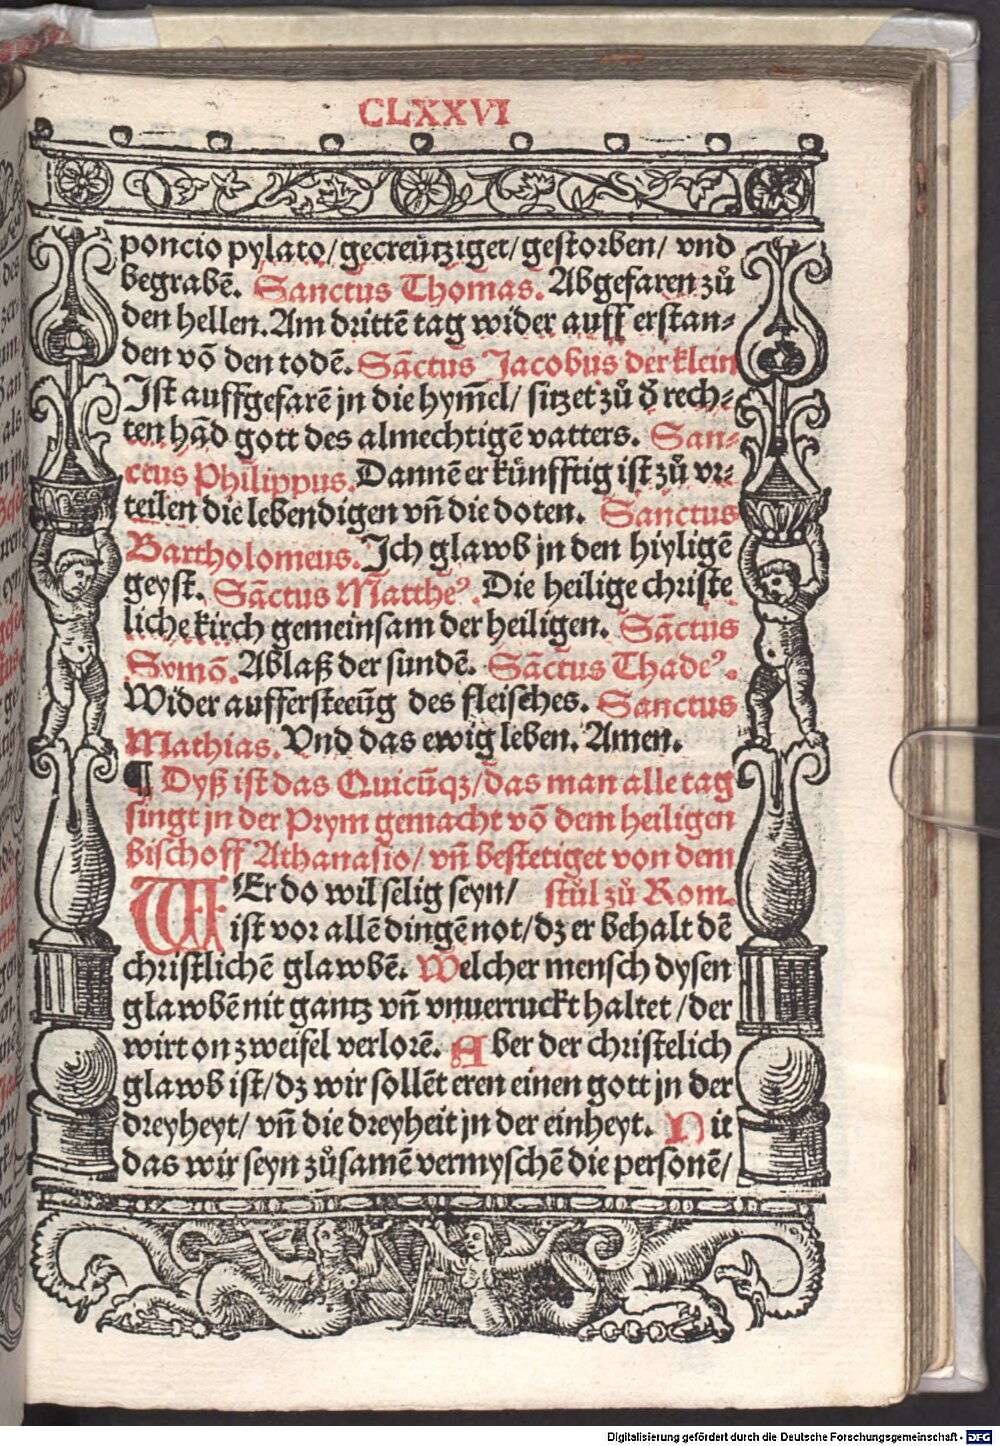 CLXXVI
poncio pylato/gecreůtziget/gestorben/ vnd
begrabē. Sanctus Thomas. Abgefaren zů
den hellen. Am drittē tag wider auff erstan⸗
den vō den todē. Sāctus Jacobus der klein
Ist auffgefarē jn die hym̄el/ sitzet zů d̕ rech⸗
ten hād gott des almechtigē vatters. San⸗
ctus Philippus. Dannē er kůnfftig ist zů vr⸗
teilen die lebendigen vn̄ die doten. Sanctus
Bartholomeus. Jch glawb jn den hiyligē
geyst. Sāctus Mattheꝰ. Die heilige christe
liche kirch gemeinsam der heiligen. Sāctus
Symō. Ablaß der sundē. Sāctus Thadeꝰ.
Wider auffersteeūg des fleisches. Sanctus
Mathias. Vnd das ewig leben. Amen.
¶ Dyß ist das Quicūqꝫ/das man alle tag
singt jn der Prym gemacht vō dem heiligen
Bischoff Athanasio/ vn̄ bestetiget von dem
WEr do wil selig seyn/ stůl zů Rom.
ist vor allē dingē not/dz er behalt dē
christlichē glawbē. Welcher mensch dysen
glawbē nit gantz vn̄ vnuerruckt haltet/der
wirt on zweifel verlorē. Aber der christelich
glawb ist/dz wir sollēt eren einen gott jn der
dreyheyt/ vn̄ die dreyheit jn der einheyt. Nit
das wir seyn zůsamē vermyschē die personē/
Digitalisierung gefördert durch die Deutsche Forschungsgemeinschaft - DFG